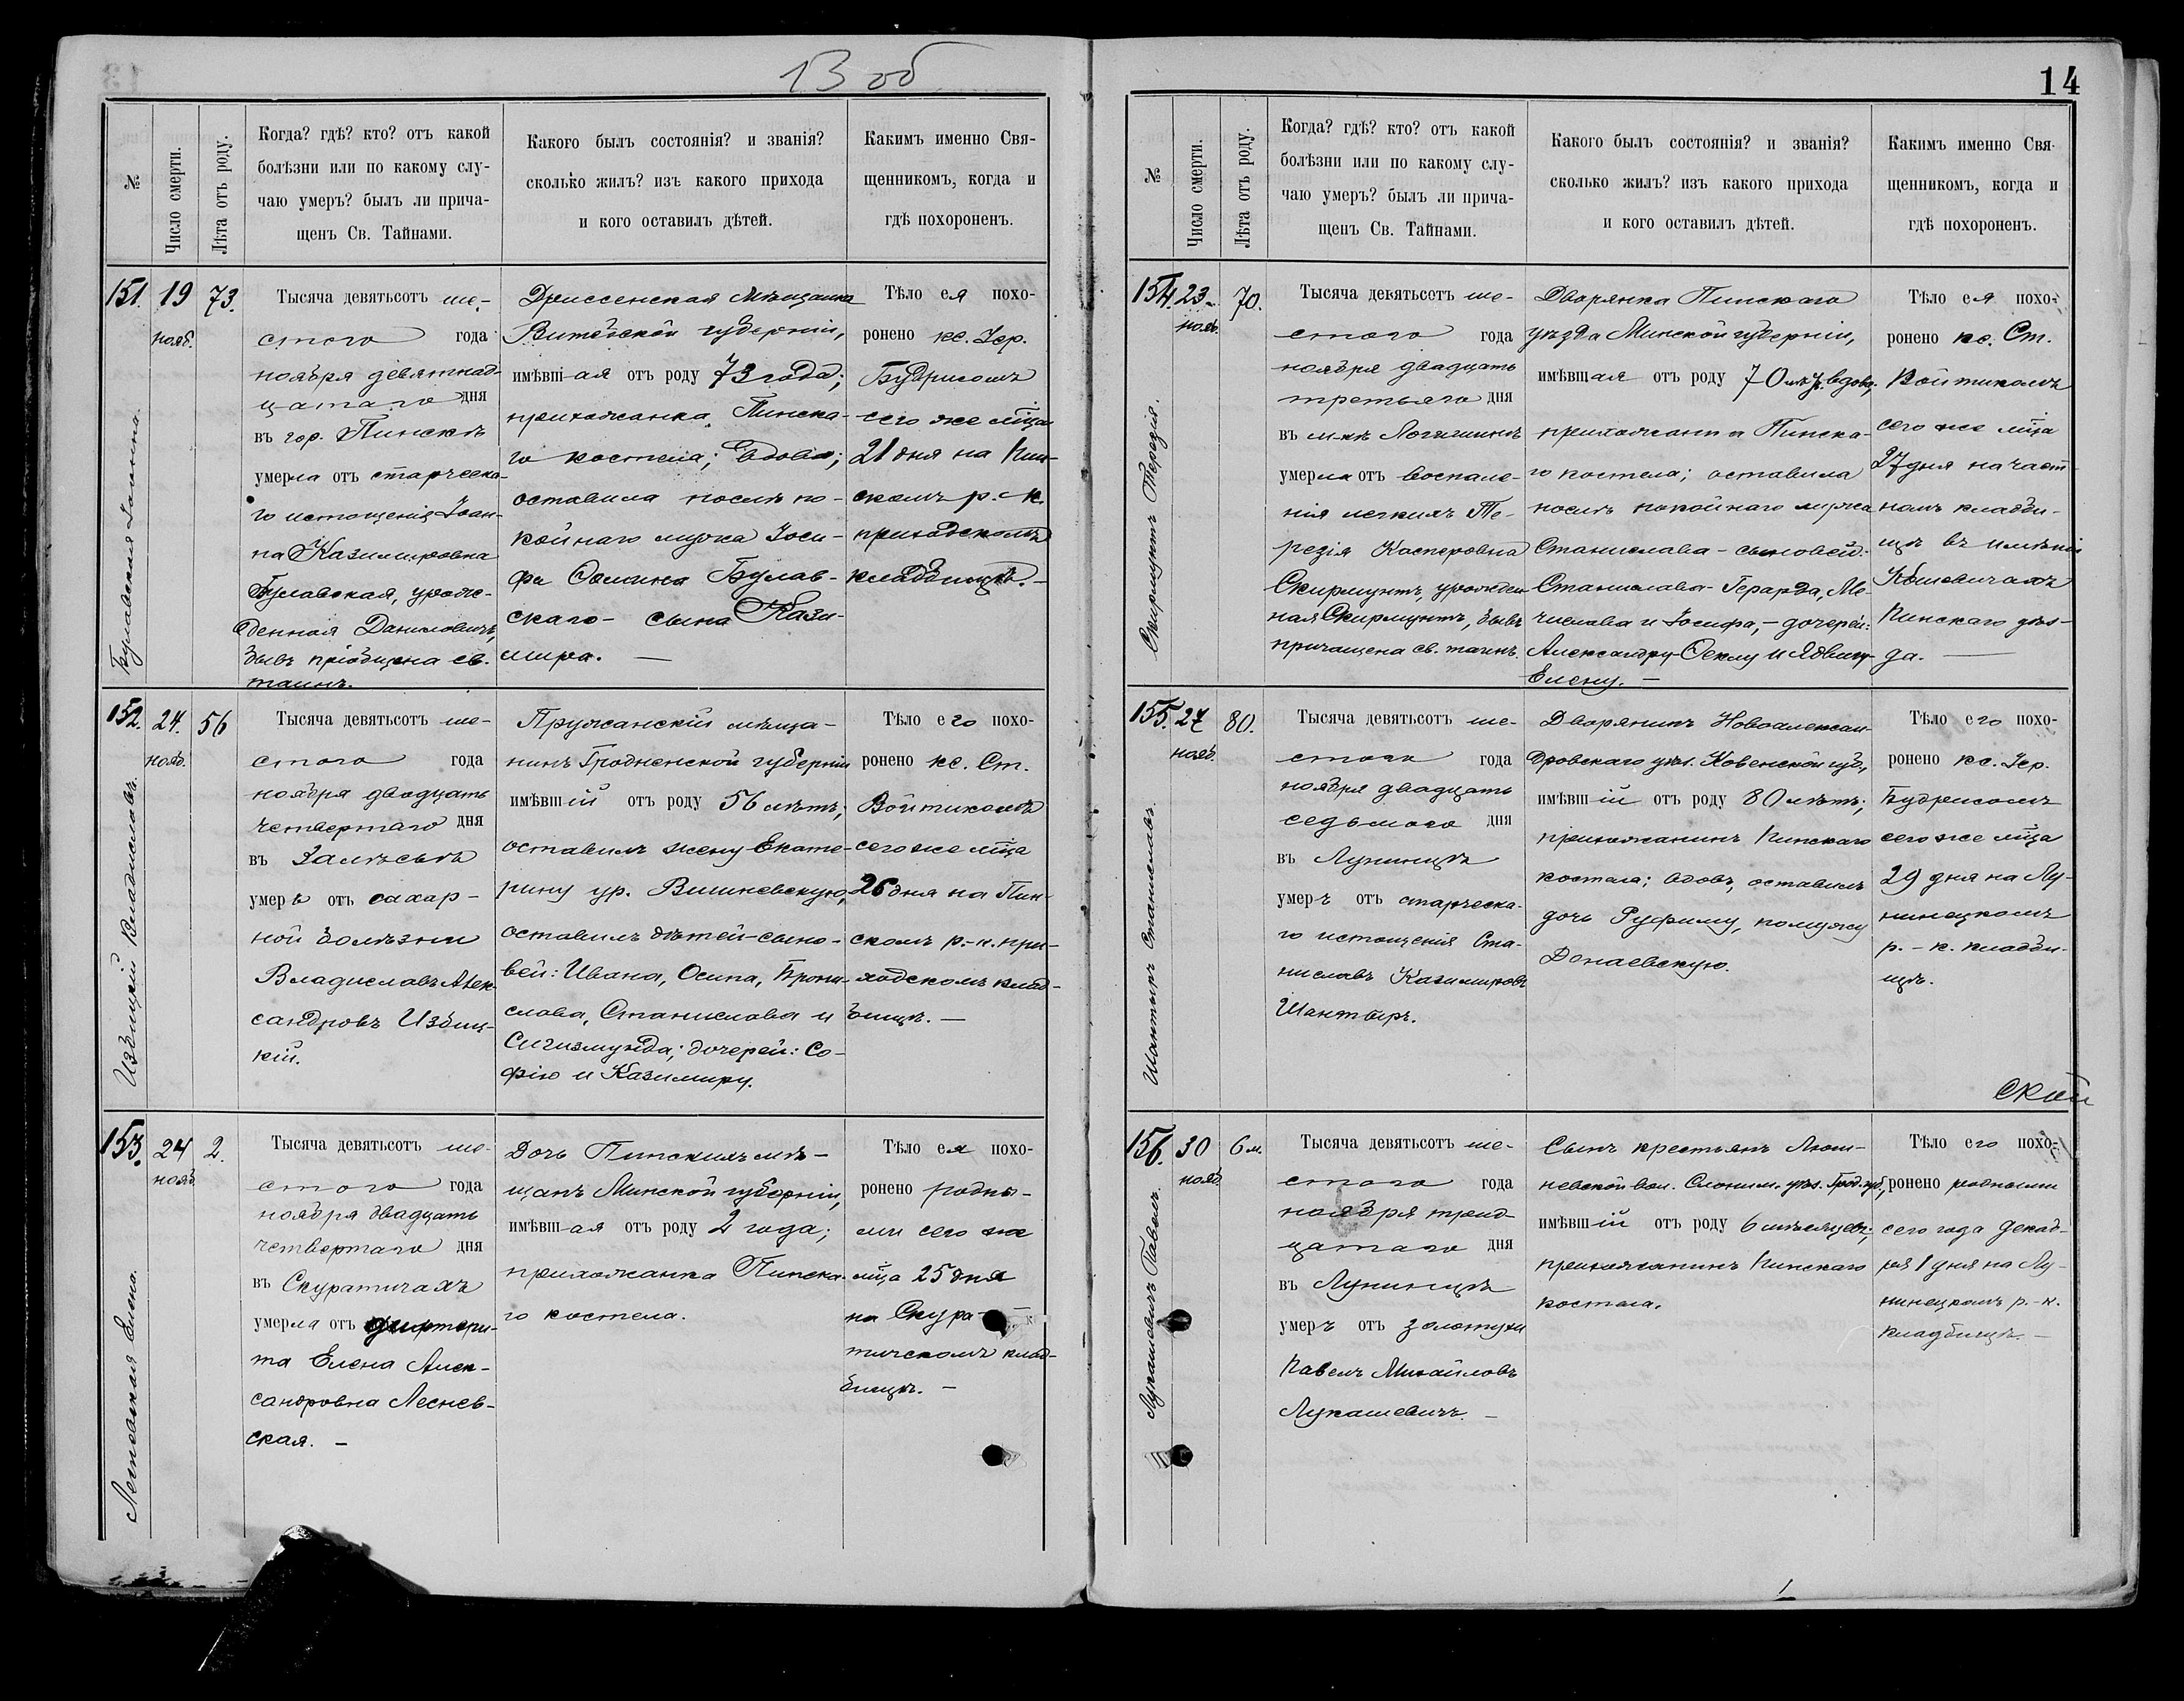 13 об
№
Число смерти.
Лѣта отъ роду.
Когда? гдѣ? кто? отъ какой
болѣзни или по какому слу-
чаю умеръ? былъ ли прича-
щенъ Св. Тайнами.
Какого былъ состоянія? и званія?
сколько жилъ? изъ какого прихода
и кого оставилъ дѣтей.
Какимъ именно Свя-
щенникомъ, когда и
гдѣ похороненъ.
151.
19
нояб.
73.
Булавская Іоанна.
Тысяча девятьсотъ ше-
стого года
ноября девятнад-
цатаго дня
въ гор. Пинскѣ
умерла отъ старческа-
го истощенія Іоан-
на Казимировна
Булавская, урож-
денная Даниловичъ,
бывъ пріобщена св.
таинъ.
Дриссенская мѣщанка
Витебской губерніи,
имѣвшая отъ роду 73 года;
прихожанка Пинска-
го костела; вдова;
оставила послѣ по-
койнаго мужа Іоси-
фа Осипова Булав-
скаго - сына Кази-
мира. —
Тѣло ея похо-
ронено кс. Іер.
Будрисомъ
сего же мѣца
21 дня на Пин-
скомъ р.-к.
приходскомъ
кладбищѣ. -
152.
24.
нояб.
56
Избицкій Владиславъ.
Тысяча девятьсотъ ше-
стого года
ноября двадцать
четвертаго дня
въ Залѣсьѣ
умеръ отъ сахар-
ной болѣзни
Владиславъ Алек-
сандровъ Избиц-
кій.
Пружанскій мѣща-
нинъ Гродненской губерніи
имѣвшій отъ роду 56 лѣтъ;
оставилъ жену Екате-
рину ур. Вишневскую,
оставилъ дѣтей - сыно-
вей: Ивана, Осипа, Брони-
слава, Станислава и
Сигизмунда; дочерей: Со-
фію и Казимиру.
Тѣло его похо-
ронено кс. Ст.
Войтикомъ
сего же мѣца
26 дня на Пин-
скомъ р.-к. при-
ходскомъ клад-
бищѣ. —
153.
24
нояб.
2.
Лесневская Елена.
Тысяча девятьсотъ ше-
стого года
ноября двадцать
четвертаго дня
въ Скуратичахъ
умерла отъ дифтери-
та Елена Алек-
сандровна Леснев-
ская. -
Дочь Пинскихъ мѣ-
щанъ Минской губерніи,
имѣвшая отъ роду 2 года;
прихожанка Пинска-
го костела.
Тѣло ея похо-
ронено родны-
ми сего же
мѣца 25 дня
на Скура-
тичскомъ клад-
бищѣ. -
14
№
Число смерти.
Лѣта отъ роду.
Когда? гдѣ? кто? отъ какой
болѣзни или по какому слу-
чаю умеръ? былъ ли прича-
щенъ Св. Тайнами.
Какого былъ состоянія? и званія?
сколько жилъ? изъ какого прихода
и кого оставилъ дѣтей.
Какимъ именно Свя-
щенникомъ, когда и
гдѣ похороненъ.
154.
23
нояб.
70.
Скирмунтъ Терезія.
Тысяча девятьсотъ ше-
стого года
ноября двадцать
третьяго дня
въ м-кѣ Логишинѣ
умерла отъ воспале-
нія легкихъ Те-
резія Касперовна
Скирмунтъ, урожден-
ная Скирмунтъ, бывъ
причащена св. таинъ.
Дворянка Пинскаго
уѣзда Минской губерніи,
имѣвшая отъ роду 70 лѣтъ; вдова;
прихожанка Пинска-
го костела; оставила
послѣ покойнаго мужа
Станислава - сыновей:
Станислава - Герарда, Ме-
числава и Іосифа, - дочерей:
Александру - Феклу и Ядвигу
Елену. -
Тѣло ея похо-
ронено кс. Ст.
Войтикомъ
сего же мѣца
27 дня на част-
номъ кладби-
щѣ въ имѣніи
Пинскаго уѣз-
да. —
155.
27
нояб.
80.
Шантыръ Станиславъ.
Тысяча девятьсотъ ше-
стого года
ноября двадцать
седьмого дня
въ Лунинцѣ
умеръ отъ старческа-
го истощенія Ста-
ниславъ Казимировъ
Шантыръ.
Дворянинъ Новоалексан-
дровскаго уѣз. Ковенской губ.,
имѣвшій отъ роду 80 лѣтъ;
прихожанинъ Пинскаго
костела; вдовъ, оставилъ
дочь Руфину, по мужу
Донаевскую.
Тѣло его похо-
ронено кс. Іер.
Будрисомъ
сего же мѣца
29 дня на Лу-
нинецкомъ
р.-к. кладби-
щѣ.
156.
30
нояб.
6 м.
Лукашевичъ Павелъ.
Тысяча девятьсотъ ше-
стого года
ноября трид-
цатаго дня
въ Лунинцѣ
умеръ отъ золотухи
Павелъ Михайловъ
Лукашевичъ. -
Сынъ крестьянъ
вол. Слоним. уѣз. Грод. губ.,
имѣвшій отъ роду 6 мѣсяцевъ;
прихожанинъ Пинскаго
костела.
Тѣло его похо-
ронено родными
сего года декаб-
ря 1 дня на Лу-
нинецкомъ р.-к.
кладбищѣ. -